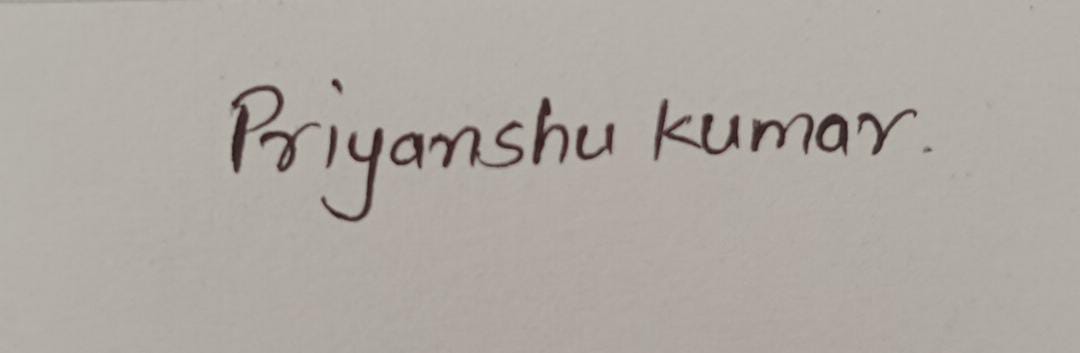 Priyanshu kumar.